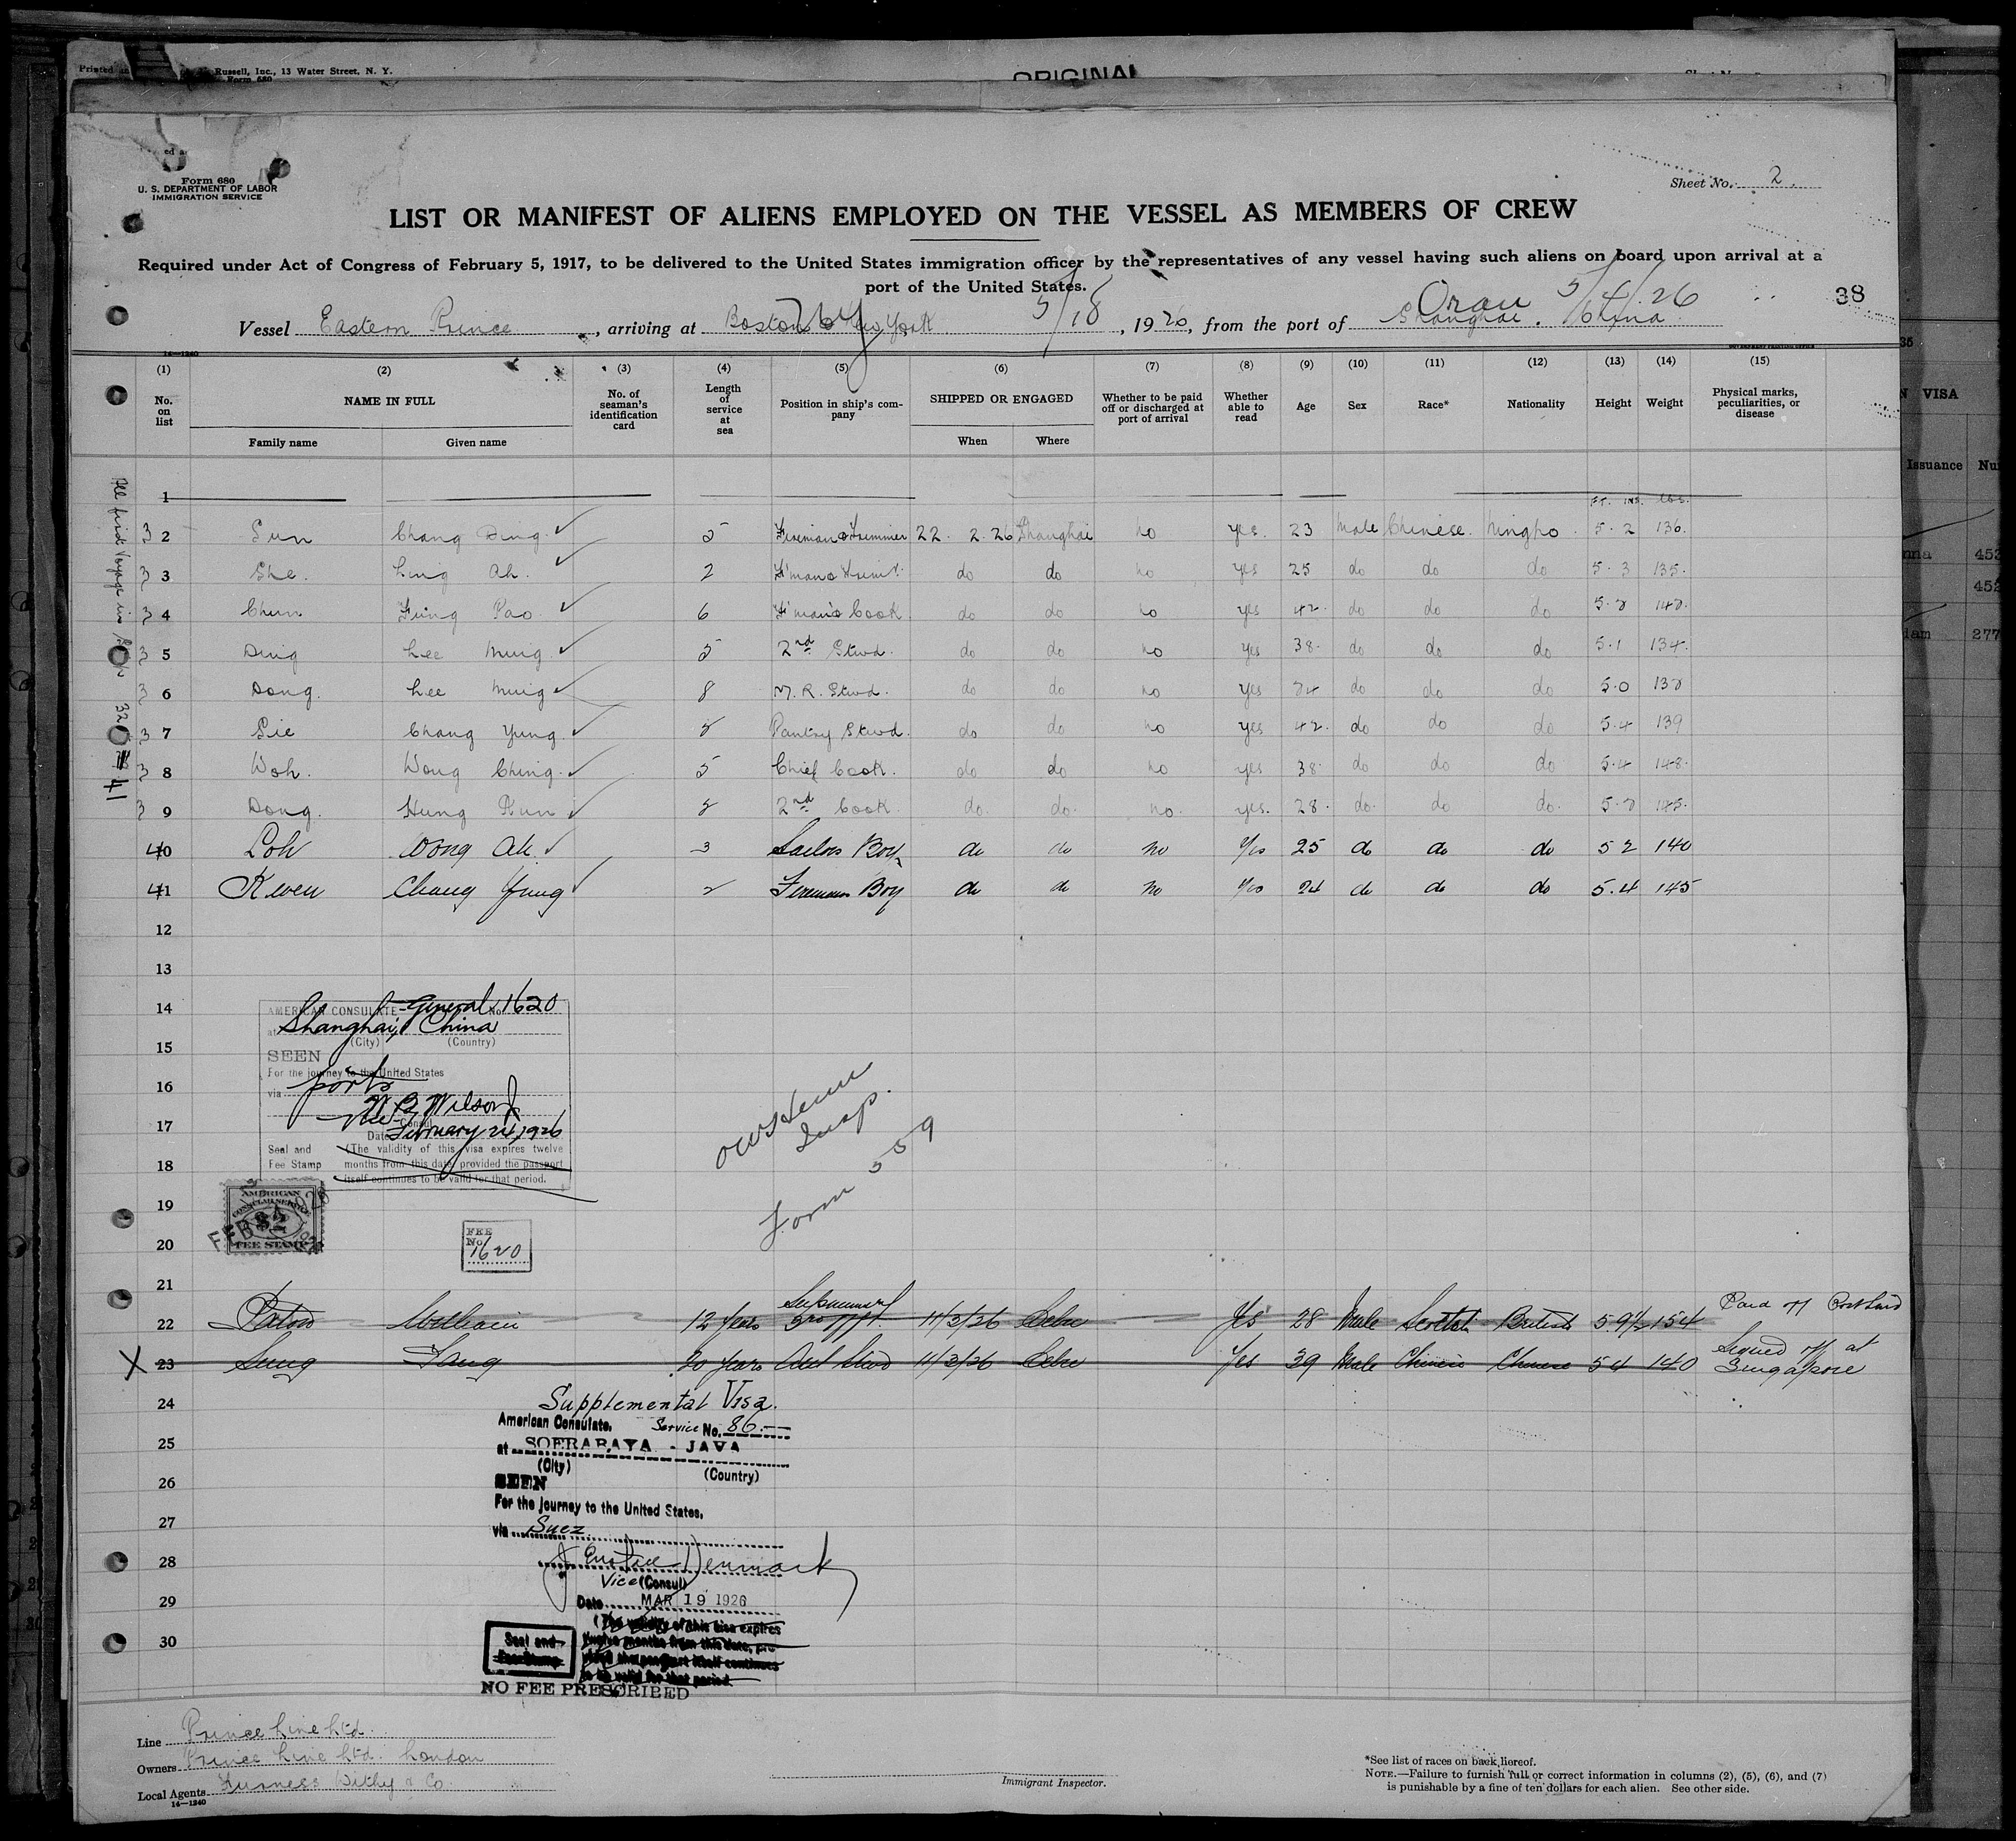 Printed Russell, Inc., 13 Water Street, N. Y.
Form 680
ORIGINAL
Form 680
U. S. DEPARTMENT OF LABOR
IMMIGRATION SERVICE
Sheet No. 2.
LIST OR MANIFEST OF ALIENS EMPLOYED ON THE VESSEL AS MEMBERS OF CREW
Required under Act of Congress of February 5, 1917, to be delivered to the United States immigration officer by the representatives of any vessel having such aliens on board upon arrival at a
port of the United States.
38
Oran 5/4/26
Vessel Eastern Prince, arriving at Boston New York 5/18, 1926, from the port of Shanghai. China
14—1240
(1) (2) (3) (4) (5) (6) (7) (8) (9) (10) (11) (12) (13) (14) (15)
No. on list NAME IN FULL No. of seaman's identification card Length of service at sea Position in ship's company SHIPPED OR ENGAGED Whether to be paid off or discharged at port of arrival Whether able to read Age Sex Race* Nationality Height Weight Physical marks, peculiarities, or disease
Family name Given name When Where
VISA
Issuance
1 FT. INS. lbs.
3 2 Sun Chang Ding 5 Fireman & Trimmer 22. 2. 26 Shanghai no yes. 23 Male Chinese. Ningpo. 5. 2 136.
3 3 She. Ling Ah. 2 do do no yes 25 do do do 5. 3 135.
3 4 Chun Fung Pao. 6 F'man's Cook. do do no yes 42. do do do 148.
3 5 Ding Lee Ming. 5 2nd Stwd. do do no yes 38. do do do 5.1 134.
3 6 Dong. Lee Ming 8 M. R. Stwd. do do no yes do do do 5.0
3 7 Sie Chang Yung. Pantry Stwd. do do no yes 42. do do do 5.4 139
3 8 Woh. Wong Ching. 5 Chief Cook. do do no yes 38 do do do 5.4 148.
3 9 Dong. Hung Kun 2nd Cook. do. do. no. yes. 28. do. do do. 145.
40 Loh Wong Ah. 3 Sailors Boy do do no Yes 25 do do do 5 2 140
41 Kwen Chang Yung 2 Firemans Boy do do no Yes 24 do do do 5.4 145
12
13
14
15
16
17
18
19
20
21
AMERICAN CONSULATE-General No. 1620
at Shanghai, China
(City) (Country)
SEEN
For the journey to the United States
via ports
W B Wilson
Vice Consul
Date February 24, 1926
Seal and Fee Stamp
(The validity of this visa expires twelve
months from this date, provided the passport
itself continues to be valid for that period.
AMERICAN
CONSULAR SERVICE
FEE STAMP
FEE
No.
1620
Insp.
Form 559
22 Paton William 12 years Supernumary 3rd 11/3/26 Cebu Yes 28 Male Scotch British 5.9½ 154 Paid off Portland
X 23 Sung Yang 20 years Asst Stwd 11/3/26 Cebu Yes 39 Male Chinese Chinese 5 4 140 Signed off at Singapore
24
25
26
27
28
29
30
Supplemental Visa.
American Consulate. Service No. 86.—
at SOERABAYA - JAVA
(City) (Country)
SEEN
For the journey to the United States,
via Suez
Denmark
Vice (Consul)
Date MAR 19 1926
(The validity of this visa expires
twelve months from this date, pro
vided the passport itself continues
to be valid for that period.
Seal and
Fee Stamp
NO FEE PRESCRIBED
Line Prince Line Ltd.
Owners Prince Line Ltd. London
Local Agents Furness Withy & Co.
14—1240
Immigrant Inspector.
*See list of races on back hereof.
NOTE.—Failure to furnish full or correct information in columns (2), (5), (6), and (7)
is punishable by a fine of ten dollars for each alien. See other side.